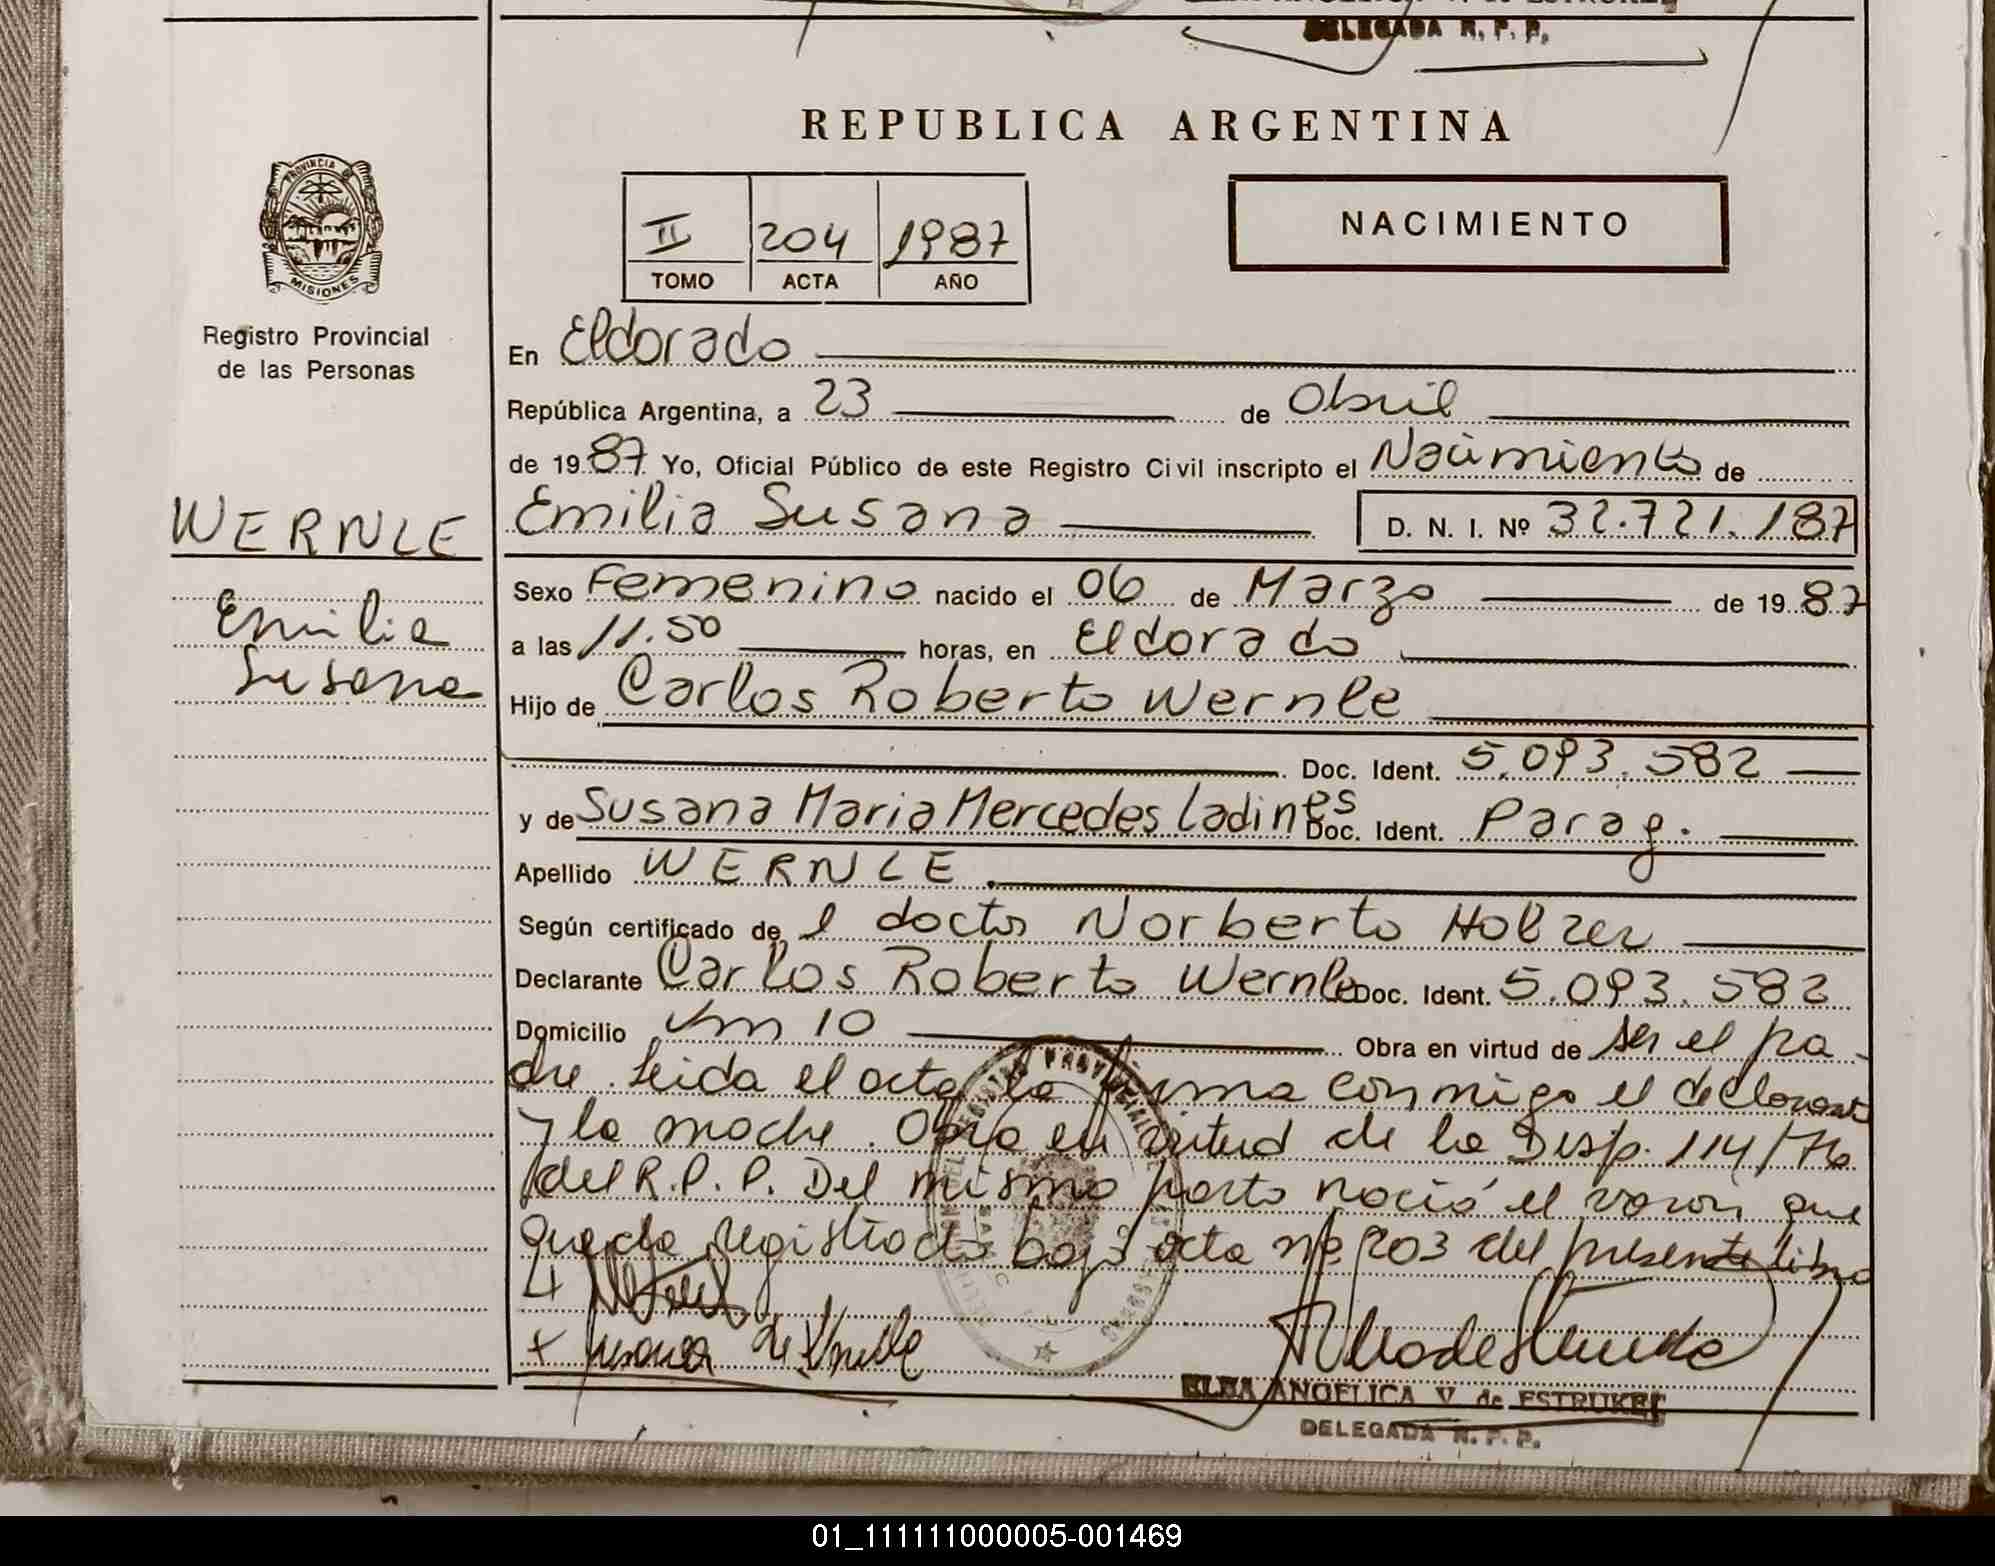 DELEGADA R. P. P.
REPUBLICA ARGENTINA
PROVINCIA
MISIONES
Registro Provincial
de las Personas
II 204 1987
TOMO ACTA AÑO
NACIMIENTO
En Eldorado
República Argentina, a 23 de Abril
de 1987 Yo, Oficial Público de este Registro Civil inscripto el Nacimiento de
WERNLE
Emilia
Susana
Emilia Susana D. N. I. Nº 32.721.187
Sexo Femenino nacido el 06 de Marzo de 1987
a las 11.50 horas, en Eldorado
Hijo de Carlos Roberto Wernle
Doc. Ident. 5.093.582
y de Susana Maria Mercedes Ladines Doc. Ident. Parag.
Apellido WERNLE
Según certificado de l doctor Norberto Holzer
Declarante Carlos Roberto Wernle Doc. Ident. 5.093.582
Domicilio Km 10 Obra en virtud de ser el pa-
dre. Leida el acta la firma conmigo el declarant
y la madre. Obra en virtud de la Disp. 114/76
del R.P.P. Del mismo parto nació el varon que
queda registrado bajo acta nº 203 del presente libro
ELBA ANGELICA V. de ESTRUKEL
DELEGADA R. P. P.
01_111111000005-001469